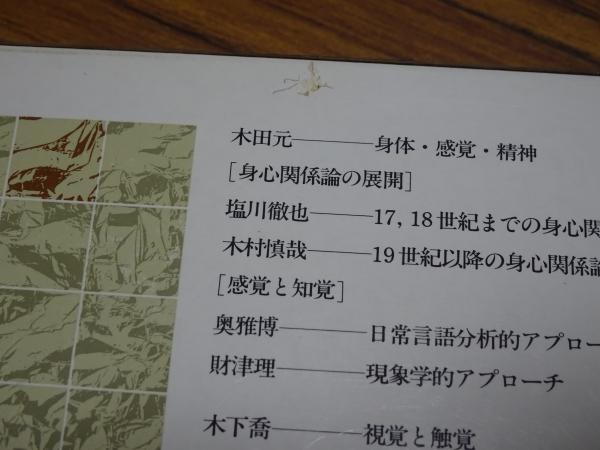 木田元———身体・感覚・精神
[身心関係論の展開]
塩川徹也———17, 18世紀までの身心関
木村慎哉———19世紀以降の身心関係論
[感覚と知覚]
奥雅博———日常言語分析的アプロー
財津理———現象学的アプローチ
木下喬———視覚と触覚